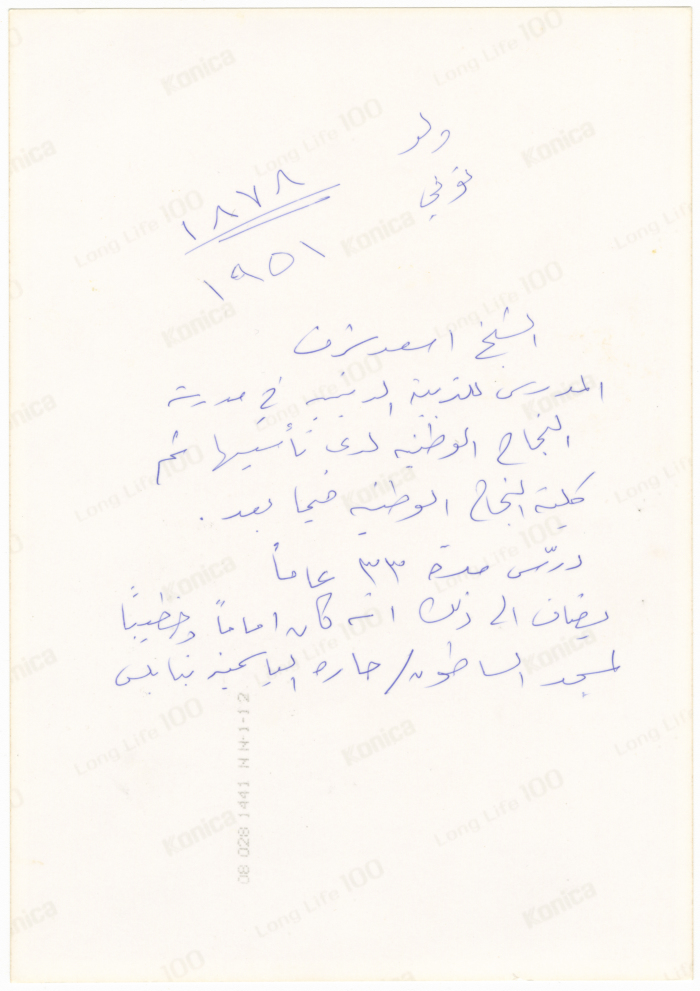 ولد ١٨٧٨
توفي ١٩٥١
الشيخ اسعد شرف
المدرس للتربية الدينية في مدرسة
النجاح الوطنية لدى تأسيسها ثم
كلية النجاح الوطنية فيما بعد .
درّس مدة ٣٣ عاماً
يضاف الى ذلك انه كان اماماً وخطيباً
لمسجد الساطون / حارة الياسمينة بنابلس
08 028 1441 N N-1-12
Konica
Long Life 100